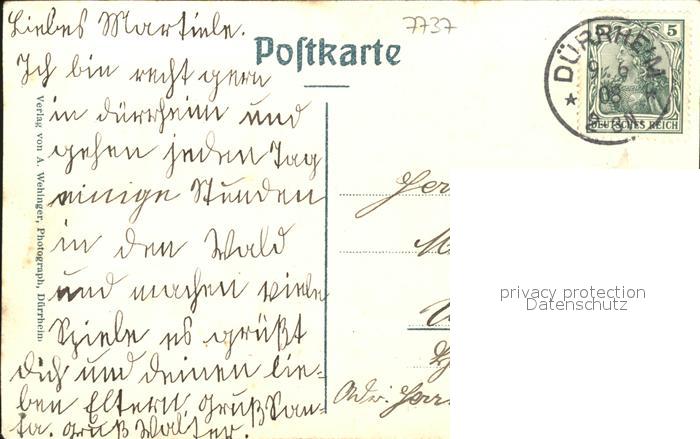 7737
Postkarte
DÜRRHEIM
9. 6
08
DEUTSCHES REICH
5
Liebes Martiele.
Ich bin recht gern
in Dürrheim und
gehen jeden Tag
einige Stunden
in den Wald
und machen viele
Spiele es grüßt
Dich und deinen lie-
ben Eltern, Gruß San-
ta. Gruß Walter.
Verlag von A. Wehinger, Photograph, Dürrheim
Her
M
Adr. Herr
privacy protection
Datenschutz